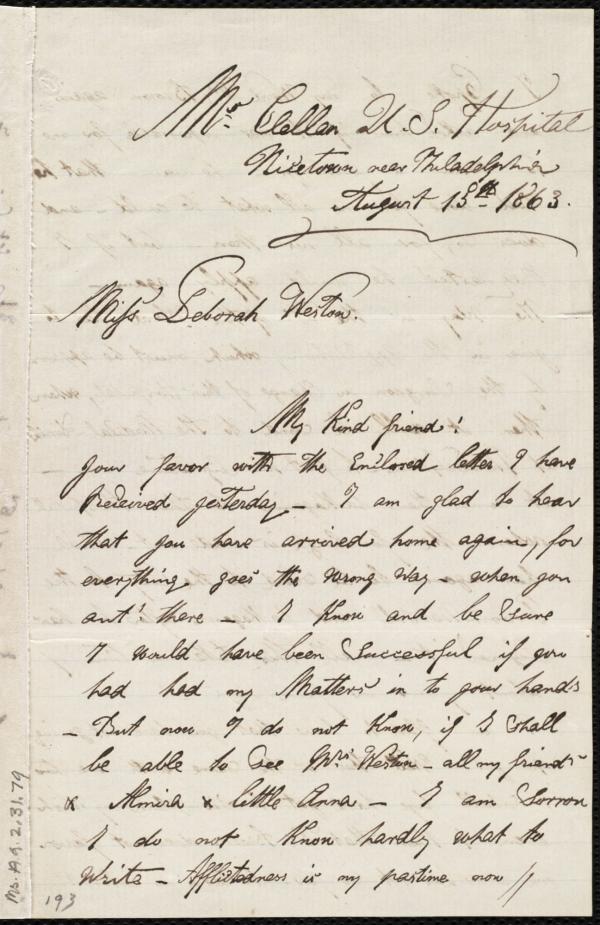 Mc. Clellan U. S. Hospital
Nicetown near Philadelphia
August 15th 1863.
Miss Deborah Weston.
My Kind friend!
your favor with the Enclosed letter I have
Received yesterday – I am glad to hear
that you have arrived home again, for
everything goes the wrong way – when you
ant! there – I Know and be Sure
I would have been Successful if you
had had my Matters in to your hands
– But now I do not Know, if I Shall
be able to See Mrs Weston – all my friends
& Almira & little Anna – I am Sorrow
I do not Know hardly what to
Write – Afflictedness is my pastime now //
Ms. A.9.2.31.79
193